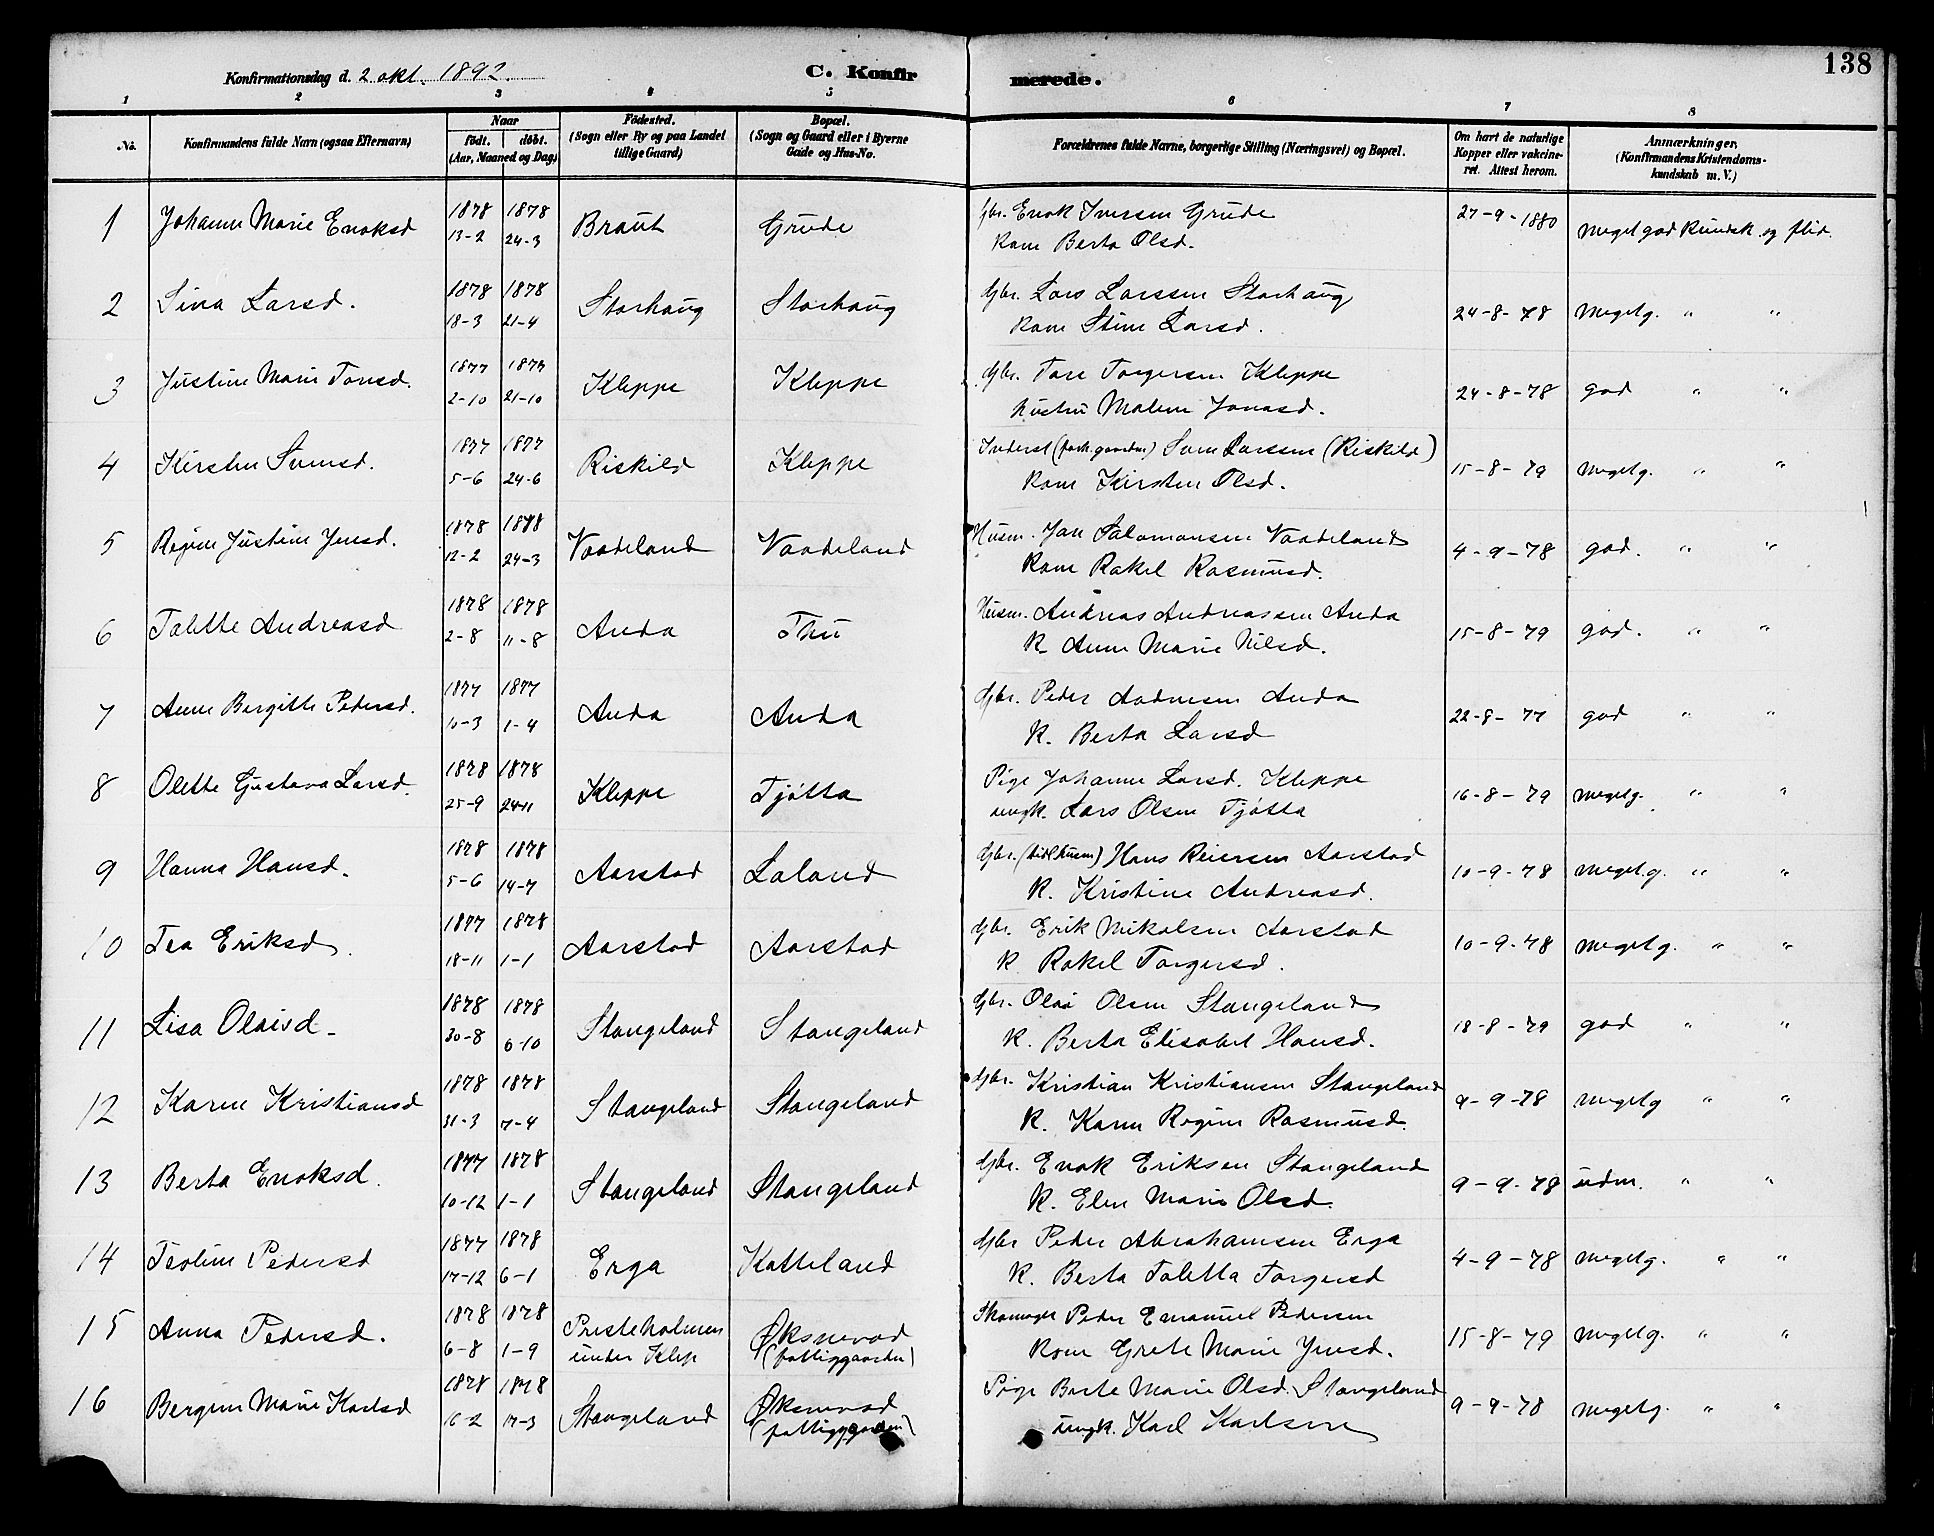 138
Konfirmationsdag d. 2 okt. 1892.
C. Konfirmerede.
1 2 3 4 5 6 7 8
No. Konfirmandens fulde Navn (ogsaa Efternavn) Naar født. døbt. (Aar, Maaned og Dag) Fødested. (Sogn eller By og paa Landet tillige Gaard) Bopæl. (Sogn og Gaard eller i Byerne Gade og Hus-No. Forældrenes fulde Navne, borgerlige Stilling (Næringsvei) og Bopæl. Om havt de naturlige Kopper eller vakcineret. Attest herom. Anmærkninger, (Konfirmandens Kristendomskundskab m. V.)
1 Johanne Marie Enoksd 1878 13-2 1878 24-3 Braut Grude Gbr. Enok Iversen Grude 27-9-1880 Meget god kundsk. og flid.
Kone Berta Olsd.
2 Sina Larsd. 1878 18-3 1878 21-4 Storhaug Storhaug Gbr. Lars Larssen Storhaug 24-8-78 Megetg. " "
Kone Stine Larsd.
3 Justine Marie Toresd. 1877 2-10 1877 21-10 Kleppe Kleppe Gbr. Tore Torgersen Kleppe 24-8-78 god " "
hustru Malene Jonasd.
4 Kirsten Svensd. 1877 5-6 1877 24-6 Riskild Kleppe Inderst Sven Larssen (Riskild) 15-8-79 Megetg. " "
Kone Kirsten Olsd.
5 Regine Justine Jensd. 1878 12-2 1878 24-3 Vaadeland Vaadeland Husm. Jan Salomonsen Vaadeland 4-9-78 god. " "
Kone Rakel Rasmusd.
6 Talette Andreasd 1878 2-8 1878 11-8 Anda Thu Husm. Andreas Andreassen Anda 15-8-79 god. " "
K. Anne Marie Nilsd.
7 Anne Bergitte Pedersd. 1877 10-3 1877 1-4 Anda Anda Gbr. Peder Aadnesen Anda 22-8-77 god " "
K. Berta Larsd
8 Olette Gustava Larsd. 1878 25-9 1878 24-11 Kleppe Tjøtta Pige Johanne Larsd. Kleppe 16-8-79 Megetg. " "
ungk. Lars Olsen Tjøtta
9 Hanna Hansd. 1878 5-6 1878 14-7 Aarstad Laland Gbr. (tidl husm) Hans Reiersen Aarstad 10-9-78 Megetg. " "
K. Kristine Andreasd.
10 Tea Eriksd. 1877 18-11 1878 1-1 Aarstad Aarstad Gbr. Erik Mikalsen Aarstad 10-9-78 Megetg. " "
K. Rakel Torgersd.
11 Lisa Olaisd 1878 30-8 1878 6-10 Stangeland Stangeland Gbr. Olai Olsen Stangeland 18-8-79 god " "
K. Berta Elisabet Hansd.
12 Karen Kristiansd 1878 31-3 1878 7-4 Stangeland Stangeland Gbr. Kristian Kristiansen Stangeland 9-9-78 Megetg " "
K. Karen Regine Rasmusd.
13 Berta Enoksd. 1877 10-12 1878 1-1 Stangeland Stangeland Gbr. Enok Eriksen Stangeland 9-9-78 udm. " "
K. Elen Marie Olsd.
14 Teoline Pedersd 1877 17-12 1878 6-1 Erga Katteland Gbr Peder Abrahamsen Erga 4-9-78 Megetg. " "
K. Berta Taletta Torgersd
15 Anna Pedersd. 1878 6-8 1878 1-9 Presteholmen under Klep Øksnevad (fattiggaarden) Peder Emanuel Pedersen 15-8-79 Megetg. " "
Kone Grete Marie Jensd.
16 Bergine Marie Karlsd 1878 16-2 1878 17-3 Stangeland Øksnevad (fattiggaarden) Pige Berte Marie Olsd. Stangeland 9-9-78 Megetg. " "
ungk. Karl Karlsen